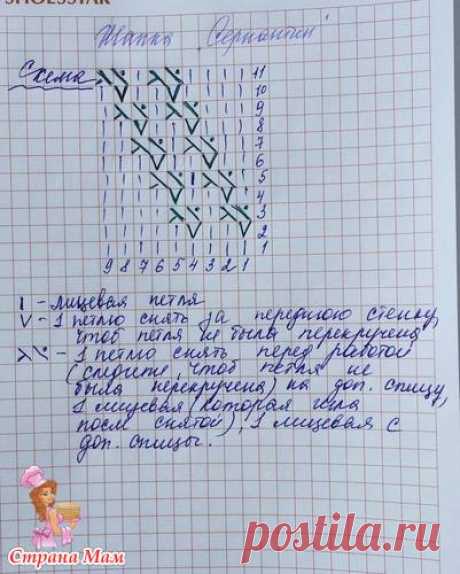 Шапка "Серпантин"
Схема
11
10
9
8
7
6
5
4
3
2
1
9 8 7 6 5 4 3 2 1
I - лицевая петля
V - 1 петлю снять за переднюю стенку,
чтоб петля не была перекручена
- 1 петлю снять перед работой
(следите, чтоб петля не
была перекручена) на доп. спицу,
1 лицевая (которая шла
после снятой), 1 лицевая с
доп. спицы.
Страна Мам
postila.ru